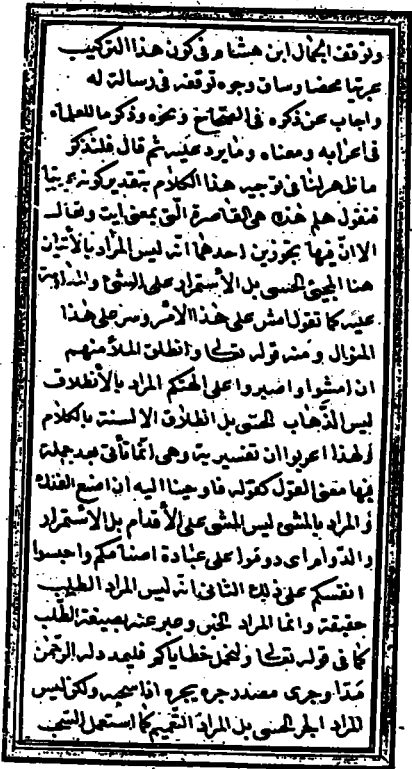 وتوقف الجمال ابن هشام في كون هذا التركيب
عربيا محضا وساق وجوه توقفه في رسالة له
واجاب عن ذكره في الصحاح ونحوه وذكر ما للعلماء
في اعرابه ومعناه وما يرد عليه ثم قال فلنذكر
ما ظهر لنا في توجيه هذا الكلام بتقدير كونه عربيا
فنقول هلم هذه هي القاصرة التي بمعنى ايت وتعال
الا ان فيها تجوزين احدهما انه ليس المراد بالأتيان
هنا المجيئ الحسى بل الأستمرار على الشئ والمداومة
عليه كما تقول امش على هذا الامر وسر على هذا
المنوال ومنه قوله تعالى وانطلق الملأ منهم
ان امشوا واصبروا على الهتكم المراد بالأنطلاق
ليس الذهاب الحسى بل انطلاق الالسنة بالكلام
ولهذا اعربوا ان تفسيرية وهي انما تأتي بعد جملة
فيها معنى القول كقوله فاوحينا اليه ان اصنع الفلك
والمراد بالمشى ليس المشى على الأقدام بل الأستمرار
والدوام اى دوموا على عبادة اصنامكم واحبسوا
انفسكم على ذلك الثاني انه ليس المراد الطلب
حقيقة وانما المراد الخبر وعبر عنه بصيغة الطلب
كما في قوله تعالى ولنحمل خطاياكم فليمدد له الرحمن
مدا وجرى مصدر جره يجره اذا سحبه ولكن ليس
المراد الجر الحسى بل المراد التعميم كما استعمل السحب